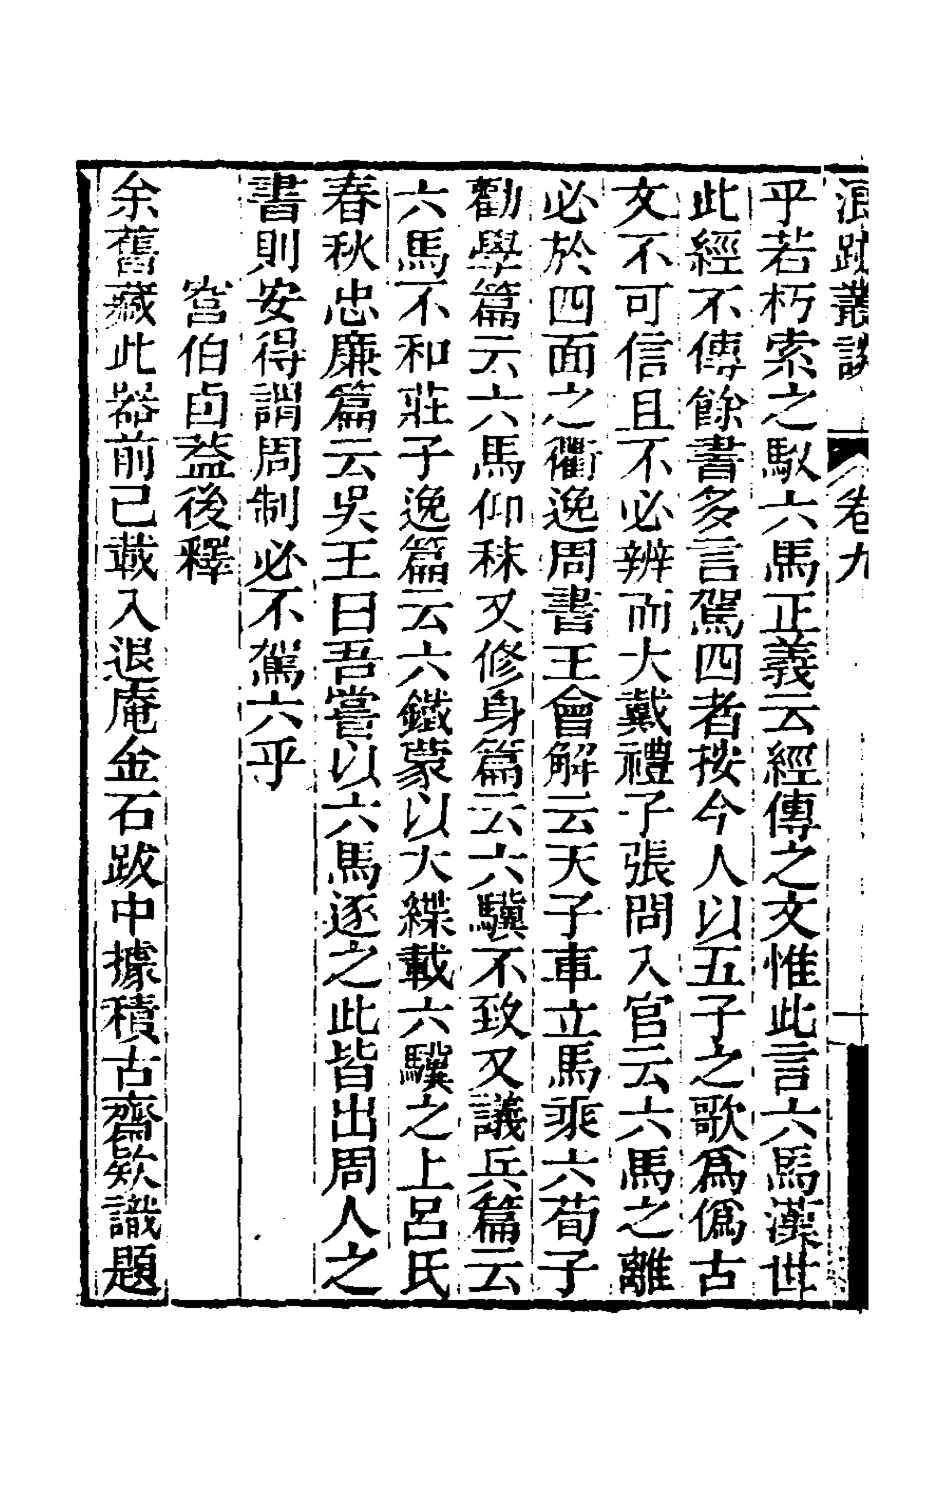 浪跡叢談 卷九 十
乎若朽索之馭六馬正義云經傳之文惟此言六馬漢世
此經不傳餘書多言駕四者按今人以五子之歌爲僞古
文不可信且不必辨而大戴禮子張問入官云六馬之離
必於四面之衢逸周書王會解云天子車立馬乘六荀子
勸學篇云六馬仰秣又修身篇云六驥不致又議兵篇云
六馬不和莊子逸篇云六鐵蒙以大緤載六驥之上呂氏
春秋忠廉篇云吳王曰吾嘗以六馬逐之此皆出周人之
書則安得謂周制必不駕六乎
窅伯卣葢後釋
余舊藏此器前已載入退庵金石跋中據積古齋欵識題